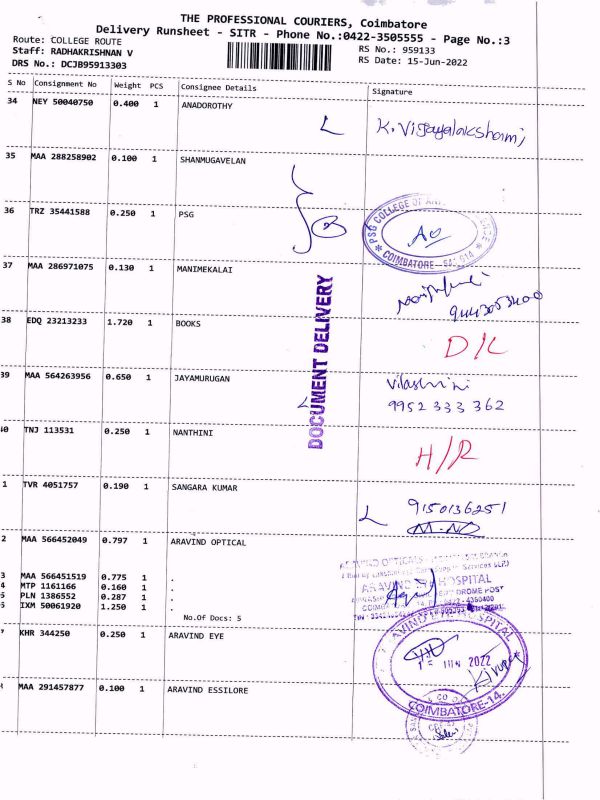 THE PROFESSIONAL COURIERS, Coimbatore
Delivery Runsheet - SITR - Phone No.:0422-3505555 - Page No.:3
Route: COLLEGE ROUTE
RS No.: 959133
Staff: RADHAKRISHNAN V
RS Date: 15-Jun-2022
DRS No.: DCJB95913303
S No Consignment No Weight PCS Consignee Details Signature
34 NEY 50040750 0.400 1 ANADOROTHY
L K. Vijayalakshmi
35 MAA 288258902 0.100 1 SHANMUGAVELAN
36 TRZ 35441588 0.250 1 PSG
PSG COLLEGE OF
AO
COIMBATORE - 641 014
37 MAA 286971075 0.130 1 MANIMEKALAI
9443053400
DOCUMENT DELIVERY
38 EDQ 23213233 1.720 1 BOOKS
D/L
39 MAA 564263956 0.650 1 JAYAMURUGAN
L Vilashini
9952 333 362
40 TNJ 113531 0.250 1 NANTHINI
H/R
1 TVR 4051757 0.190 1 SANGARA KUMAR
L 9150136251
2 MAA 566452049 0.797 1 ARAVIND OPTICAL
3 MAA 566451519 0.775 1 .
4 MTP 1161166 0.160 1 .
5 PLN 1386552 0.287 1 .
6 IXM 50061920 1.250 1 .
No.Of Docs: 5
ARAVIND EYE HOSPITAL
7 KHR 344250 0.250 1 ARAVIND EYE
ARAVIND EYE HOSPITAL
15 JUN 2022
COIMBATORE-14.
MAA 291457877 0.100 1 ARAVIND ESSILORE